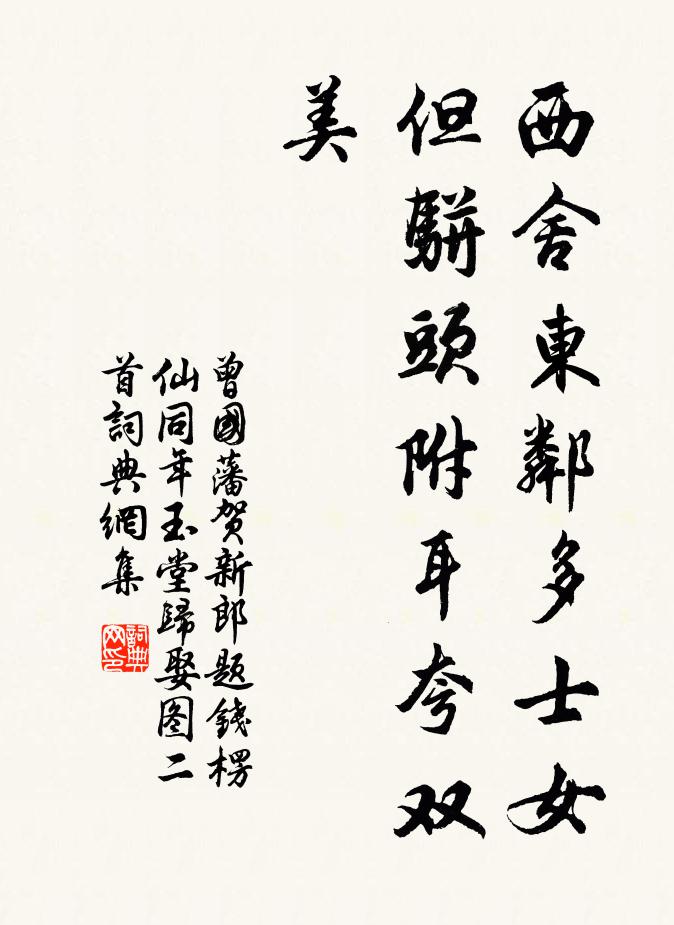 西舍東鄰多士女
但駢頭附耳夸双
美
曾國藩賀新郎題錢楞
仙同年玉堂歸娶图二
首詞典網集
詞典
网印